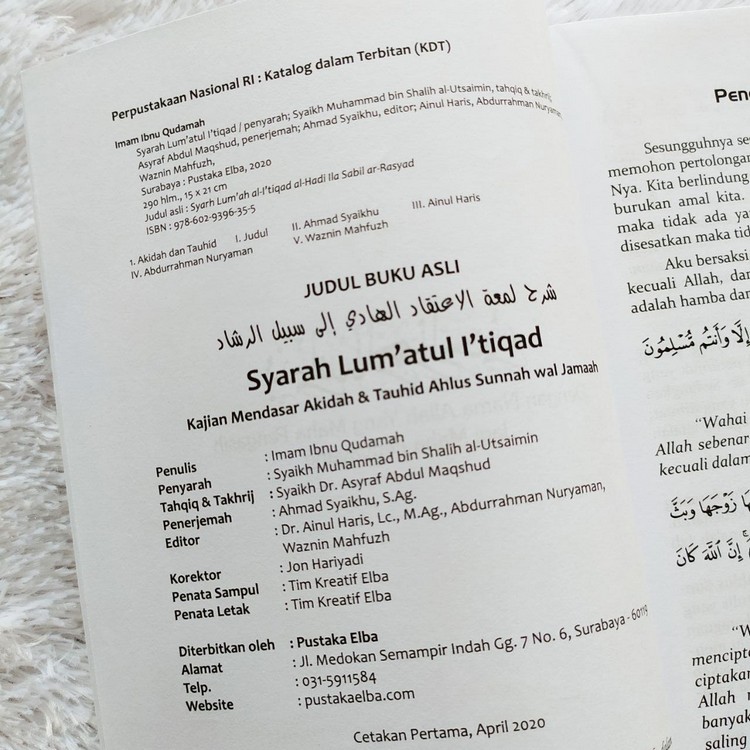 Perpustakaan Nasional RI : Katalog dalam Terbitan (KDT)
Imam Ibnu Qudamah
Syarah Lum'atul I'tiqad / penyarah; Syaikh Muhammad bin Shalih al-Utsaimin, tahqiq & takhrij,
Asyraf Abdul Maqshud, penerjemah; Ahmad Syaikhu, editor; Ainul Haris, Abdurrahman Nuryaman,
Waznin Mahfuzh,
Surabaya : Pustaka Elba, 2020
290 hlm., 15 x 21 cm
Judul asli : Syarh Lum'ah al-I'tiqad al-Hadi Ila Sabil ar-Rasyad
ISBN : 978-602-9396-35-5
1. Akidah dan Tauhid I. Judul II. Ahmad Syaikhu III. Ainul Haris
IV. Abdurrahman Nuryaman V. Waznin Mahfuzh
JUDUL BUKU ASLI
شرح لمعة الاعتقاد الهادي إلى سبيل الرشاد
Syarah Lum'atul I'tiqad
Kajian Mendasar Akidah & Tauhid Ahlus Sunnah wal Jamaah
Penulis : Imam Ibnu Qudamah
Penyarah : Syaikh Muhammad bin Shalih al-Utsaimin
Tahqiq & Takhrij : Syaikh Dr. Asyraf Abdul Maqshud
Penerjemah : Ahmad Syaikhu, S.Ag.
Editor : Dr. Ainul Haris, Lc., M.Ag., Abdurrahman Nuryaman,
Waznin Mahfuzh
Korektor : Jon Hariyadi
Penata Sampul : Tim Kreatif Elba
Penata Letak : Tim Kreatif Elba
Diterbitkan oleh : Pustaka Elba
Alamat : Jl. Medokan Semampir Indah Gg. 7 No. 6, Surabaya - 60119
Telp. : 031-5911584
Website : pustakaelba.com
Cetakan Pertama, April 2020
Sesungguhnya
memohon pertolongan
Nya. Kita berlindung
burukan amal kita.
maka tidak ada
disesatkan maka
Aku bersaksi
kecuali Allah, dan
adalah hamba dan
إِلَّا وَأَنتُم مُّسْلِمُونَ
"Wahai
Allah sebenar
kecuali dalam
زَوْجَهَا وَبَثَّ
إِنَّ اللَّهَ كَانَ
mencipt
ciptakan
Allah
banyak
saling